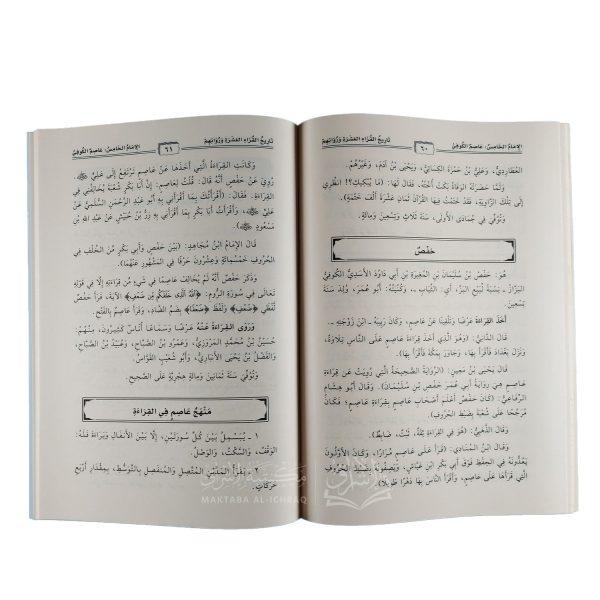 تاريخ القراء العشرة ورواتهم
٦٠
الإمام الخامس: عاصم الكوفي
العطاردي، وعلي بن حمزة الكسائي، ويحيى بن آدم، وغيرهم.
ولما حضرته الوفاة بكت أخته، فقال لها: (ما يبكيك؟! انظري
إلى تلك الزاوية، فقد ختمت فيها القرآن ثمان عشرة ألف ختمة).
وتوفي في جمادى الأولى، سنة ثلاث وتسعين ومائة.
حفص
هو: حفص بن سليمان بن المغيرة بن أبي داود الأسدي الكوفي
البزاز ـ نسبة لبيع البز، أي: الثياب ـ، وكنيته: أبو عمر، ولد سنة
تسعين.
أخذ القراءة عرضا وتلقينا عن عاصم، وكان ربيبه ـ ابن زوجته ـ.
قال الداني: (وهو الذي أخذ قراءة عاصم على الناس تلاوة،
ونزل بغداد فأقرأ بها، وجاور بمكة فأقرأ بها).
قال يحيى بن معين: (الرواية الصحيحة التي رويت عن قراءة
عاصم هي رواية أبي عمر حفص بن سليمان). وقال أبو هشام
الرفاعي: (كان حفص أعلم أصحاب عاصم بقراءة عاصم؛ فكان
مرجحا على شعبة بضبط الحروف).
وقال الذهبي: (هو في القراءة ثقة، ثبت، ضابط).
وقال ابن المنادي: (قرأ على عاصم مرارا، وكان الأولون
يعدونه في الحفظ فوق أبي بكر ابن عياش، ويصفونه بضبط الحروف
التي قرأها على عاصم، وأقرأ الناس بها دهرا طويلا).
تاريخ القراء العشرة ورواتهم
٦١
الإمام الخامس: عاصم الكوفي
وكانت القراءة التي أخذها عن عاصم ترتفع إلى علي
روي عن حفص أنه قال: قلت لعاصم: إن أبا بكر شعبة يخالفني في
القراءة. فقال: (أقرأتك بما أقرأني به أبو عبد الرحمن السلمي عن
علي، وأقرأت أبا بكر بما أقرأني به زر بن حبيش عن عبد الله بن
مسعود).
قال الإمام ابن مجاهد: (بين حفص وأبي بكر من الخلف في
الحروف خمسمائة وعشرون حرفا في المشهور عنهما).
وذكر حفص أنه لم يخالف عاصما في شيء من قراءته إلا في قوله
تعالى في سورة الروم: ﴿الله الذي خلقكم من ضعف﴾ الآية، قرأ حفص
لفظ ﴿ضعف﴾ ولفظ ﴿ضعفا﴾ بضم الضاد، وقرأ عاصم بالفتح.
وروى القراءة عنه عرضا وسماعا أناس كثيرون، منهم:
حسين بن محمد المروزي، وعمرو بن الصباح، وعبيد بن الصباح،
والفضل بن يحيى الأنباري، وأبو شعيب القواس.
وتوفي سنة ثمانين ومائة هجرية على الصحيح.
منهج عاصم في القراءة
١ ـ يبسمل بين كل سورتين، إلا بين الأنفال وبراءة فله:
الوقف، والسكت، والوصل.
٢ ـ يقرأ المدين المتصل والمنفصل بالتوسط، بمقدار أربع
حركات.
MAKTABA AL-ICHRAQ